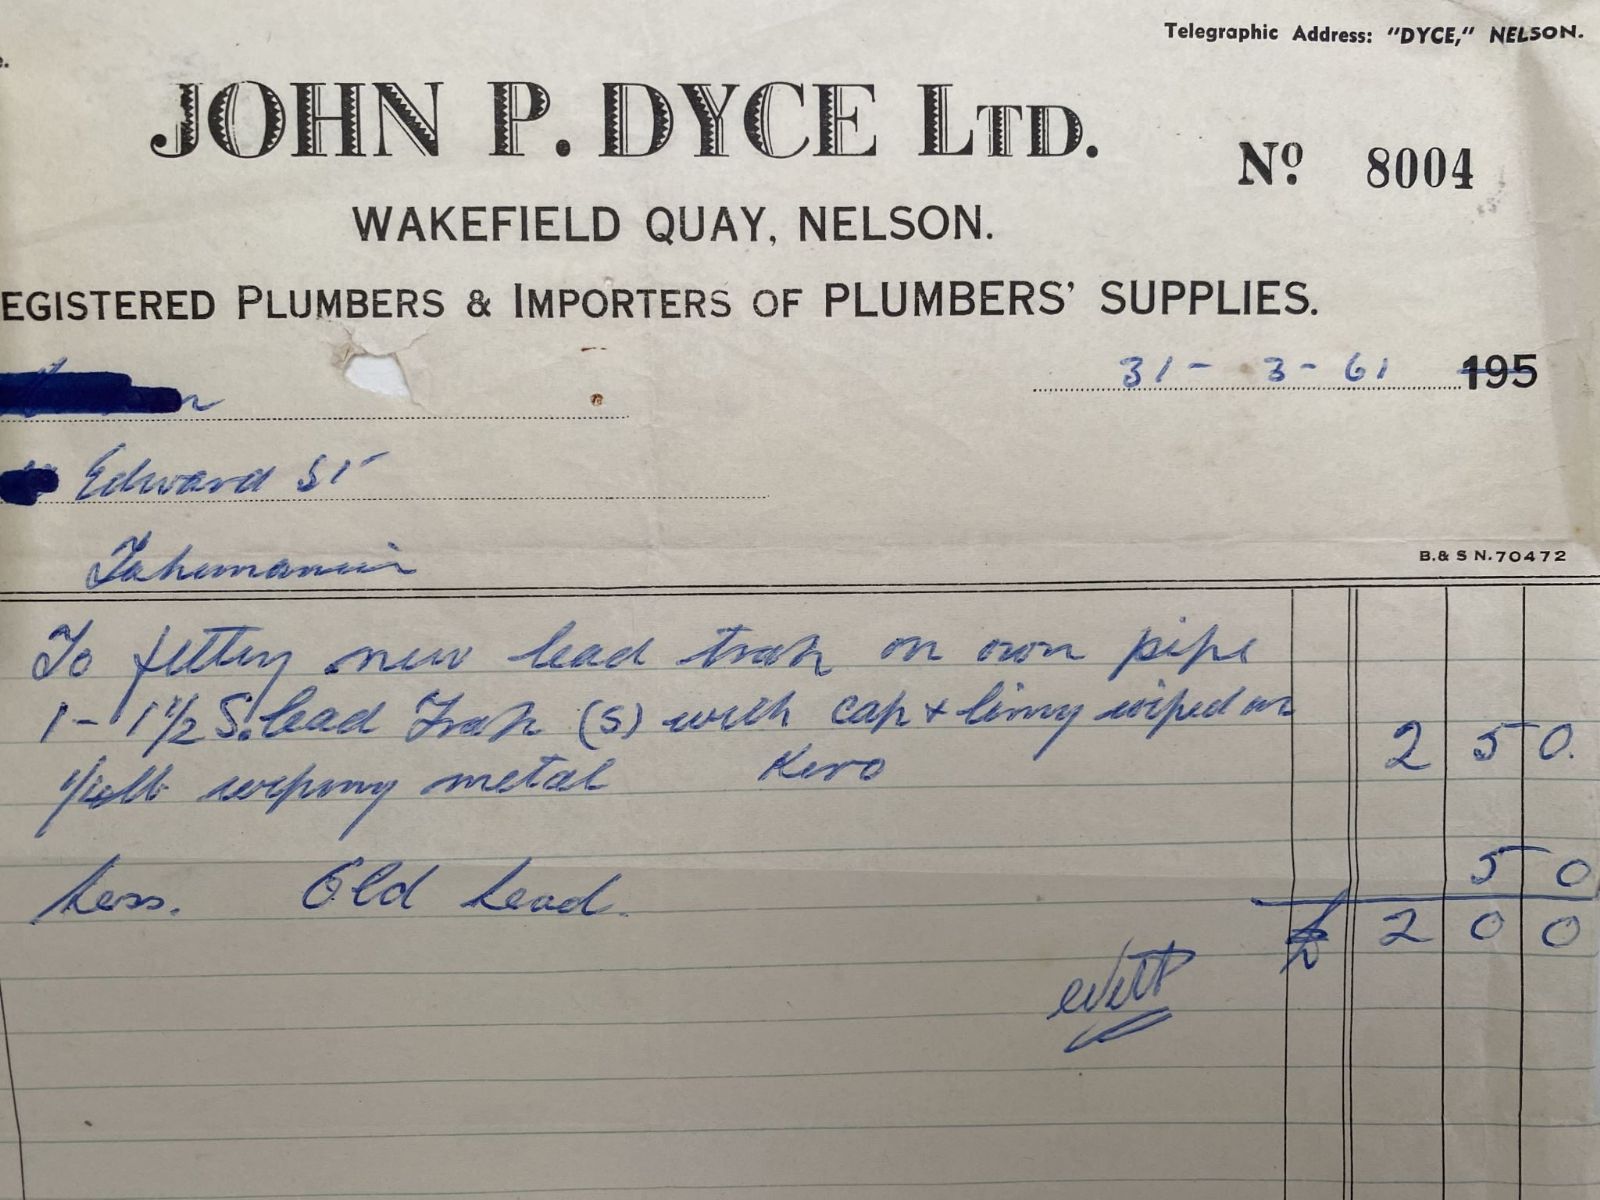 Telegraphic Address: "DYCE," NELSON.
JOHN P. DYCE LTD.
Nº 8004
WAKEFIELD QUAY, NELSON.
EGISTERED PLUMBERS & IMPORTERS OF PLUMBERS' SUPPLIES.
31 - 3 - 61 195
Edward St
Tahunanui
B. & S N. 70472
To fitting new lead trap on own pipe
1 - 1 1/2 S. lead Trap (S) with cap & lining wiped on
wiping metal Kero
2 5 0.
Less. Old Lead.
5 0
£ 2 0 0